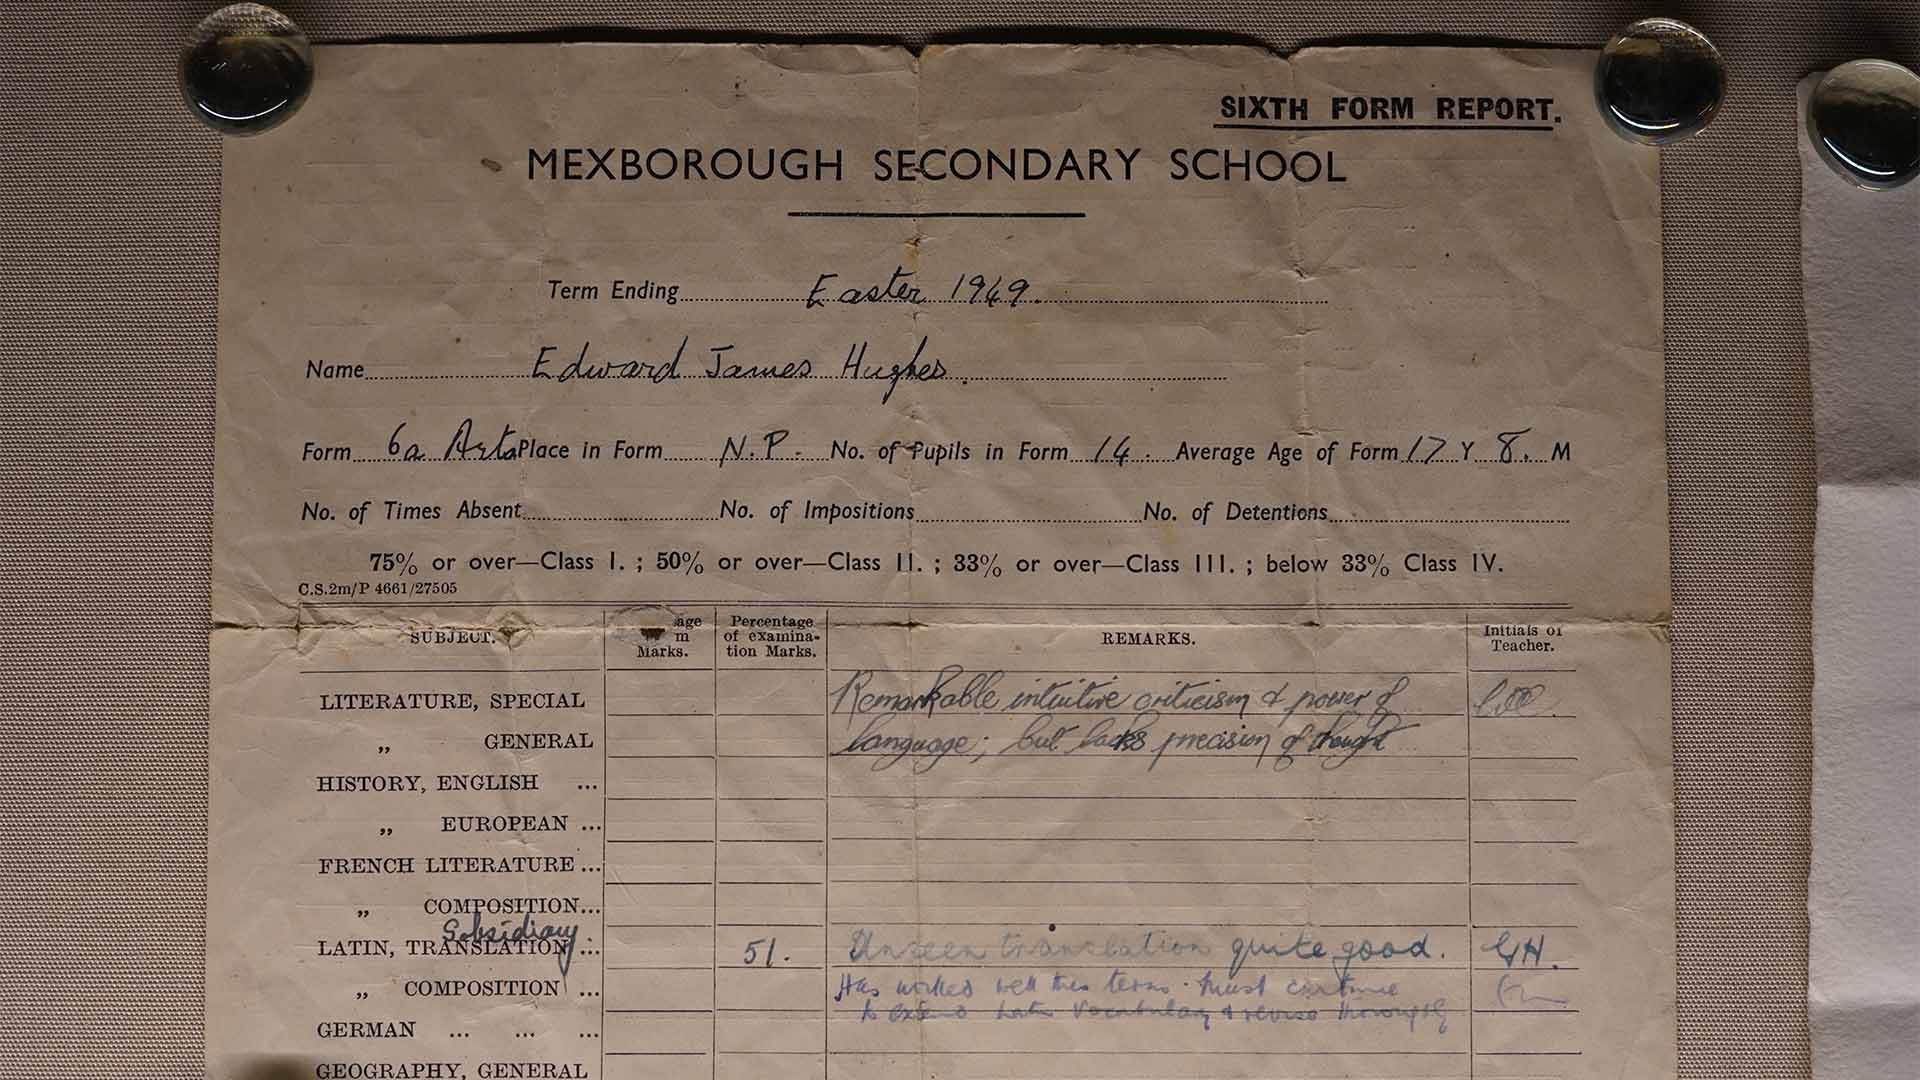 SIXTH FORM REPORT.
MEXBOROUGH SECONDARY SCHOOL
Term Ending Easter 1949.
Name Edward James Hughes.
Form 6a Arts Place in Form N.P. No. of Pupils in Form 14. Average Age of Form 17 Y 8. M
No. of Times Absent No. of Impositions No. of Detentions
75% or over—Class I. ; 50% or over—Class II. ; 33% or over—Class III. ; below 33% Class IV.
C.S.2m/P 4661/27505
SUBJECT. age m Marks. Percentage of examina- tion Marks. REMARKS. Initials of Teacher.
LITERATURE, SPECIAL Remarkable intuitive criticism & power of
„ GENERAL language; but lacks precision of thought
HISTORY, ENGLISH ...
„ EUROPEAN ...
FRENCH LITERATURE ...
„ COMPOSITION...
Subsidiary
LATIN, TRANSLATION ... 51. Unseen translation quite good. GH.
„ COMPOSITION ... Has worked well this term. Must continue
to extend Latin vocabulary & revise thoroughly
GERMAN ... ... ...
GEOGRAPHY, GENERAL